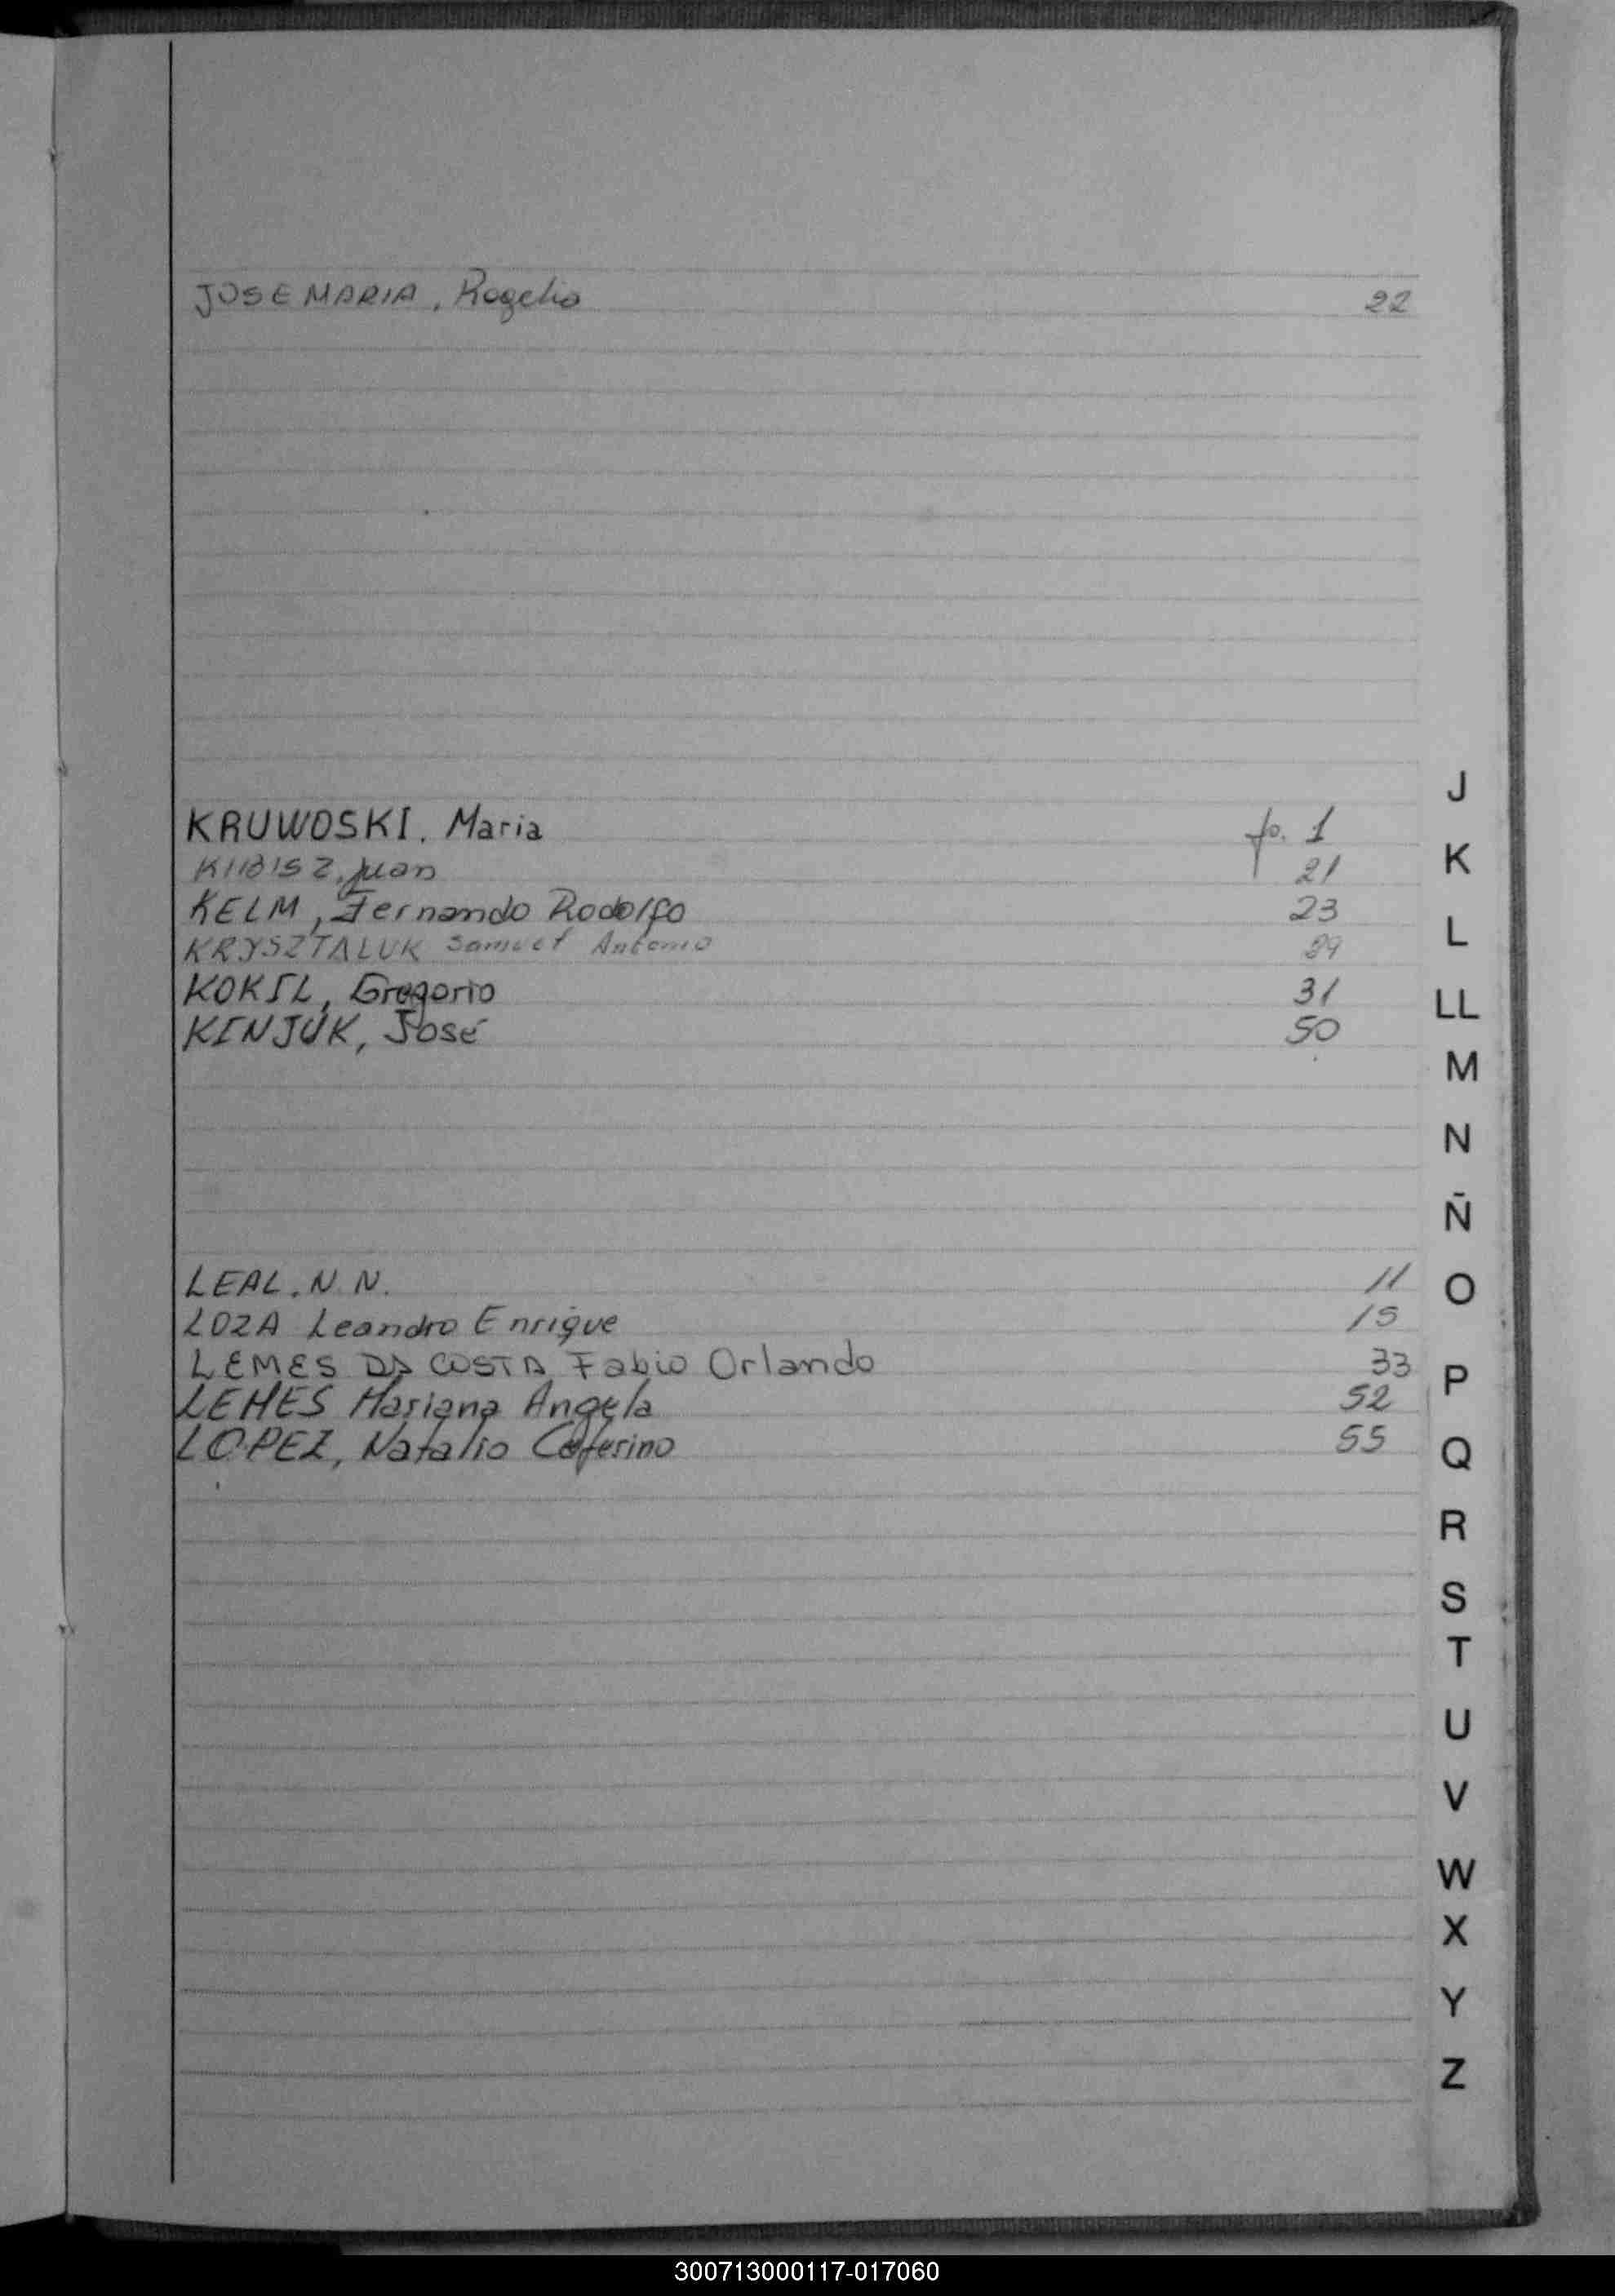 JOSE MARIA, Rogelio 22
KRUWOSKI. Maria fo. 1
KUBISZ, Juan 21
KELM, Fernando Rodolfo 23
KRYSZTALUK Samuel Antonio 29
KOKIL, Gregorio 31
KINJUK, José 50
LEAL. N. N. 11
LOZA Leandro Enrique 15
LEMES DA COSTA Fabio Orlando 33
LEMES Mariana Angela 52
LOPEZ, Natalio Ceferino 55
J
K
L
LL
M
N
Ñ
O
P
Q
R
S
T
U
V
W
X
Y
Z
300713000117-017060